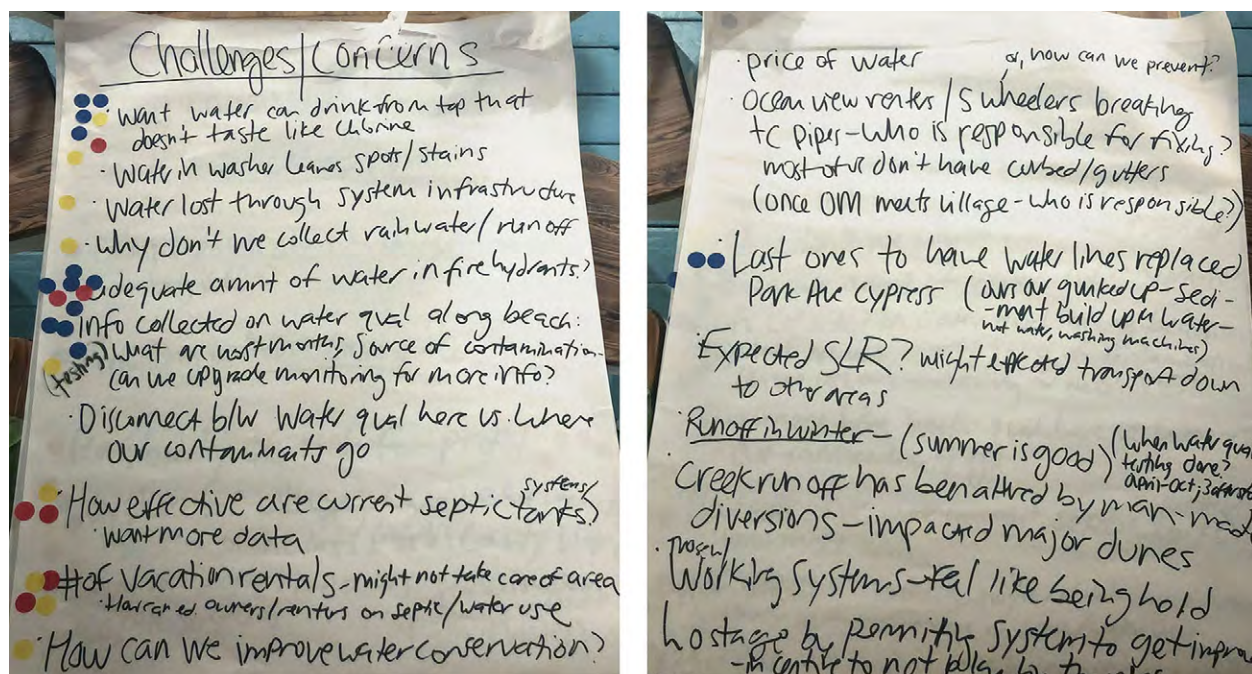 Challenges/Concerns
· want water can drink from tap that
doesn't taste like chlorine
· Water in washer leaves spots/stains
· Water lost through system infrastructure
· Why don't we collect rainwater/runoff
adequate amnt of water in fire hydrants?
info collected on water qual along beach:
(testing) What are worst months, source of contamination-
can we upgrade monitoring for more info?
· Disconnect b/w water qual here vs. where
our contaminants go
· How effective are current septic tanks?
systems/
· want more data
· # of vacation rentals - might not take care of area
· How can ed. owners/renters on septic/water use
· How can we improve water conservation?
· price of water
or, how can we prevent?
· Ocean view renters/5 wheelers breaking
TC pipes - who is responsible for fixing?
most of us don't have curbed/gutters
(once OM meets village - who is responsible?)
· Last ones to have water lines replaced
Park Ave Cypress (ours are gunked up - sedi-
-ment build up in water-
not water, washing machines)
· Expected SLR? might effected transport down
to other areas
· Runoff in winter - (summer is good)
(when water qua
testing done?
april-oct,
· Creek runoff has been altered by man-mad
diversions - impacted major dunes
· Working systems - feel like being hold
hostage by permitting system to get improv
- incentive to not